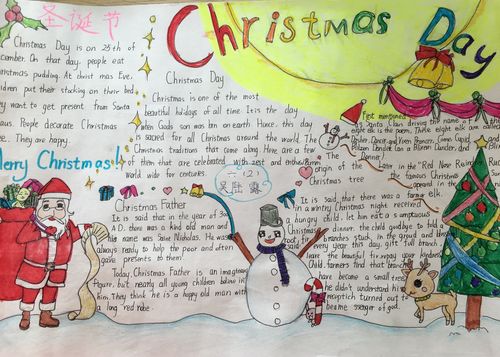 圣诞节
Christmas Day
Christmas Day is on 25th of
cember. On that day, people eat
hristmas pudding. At christ mas Eve,
ildren put their stocking on their bed
y want to get present from Santa
laus. People decorate Christmas
ee. They are happy.
Merry Christmas!
Christmas Day
Christmas is one of the most
beautiful holidays of all time. It is the day
when Gods son was born on earth. Hence, this day
is sacred for all Christians around the world. The
Christmas traditions that come along. Here are a few
of them that are celebrated with zest and
world wide for centuries.
六(2)
Christmas Father
It is said that in the year of 30
A.D. there was a kind old man and
his name was Saine Nicholas. He was
always ready to help the poor and often
gave presents to them!
Today, Christmas Father is an imaginary
figure, but nearly all young children believe in
him. They think he is a happy old man with
a long red robe.
First mentioned
Santa Claus driving the
eight elk in the poem. These eight elk are called
Dasher, Dancer and Vixen, Prancer, Comet, Cupid,
Donner
origin of the
Christmas tree
in the "Red Nose
the famous Christmas
appeared in the
It is said, that there was a farmer
in a wintry Christmas night received
a hungry child. let him eat a sumptuous
Christmas dinner. the child goodbye to fold a
branches stuck in the ground and
every year this day, gift full branch
leave the beautiful fir, repay your kindness.
Child, farmers find that branch
have become a small tree,
he didn't understand his
reception turned out to
be messenger of god.